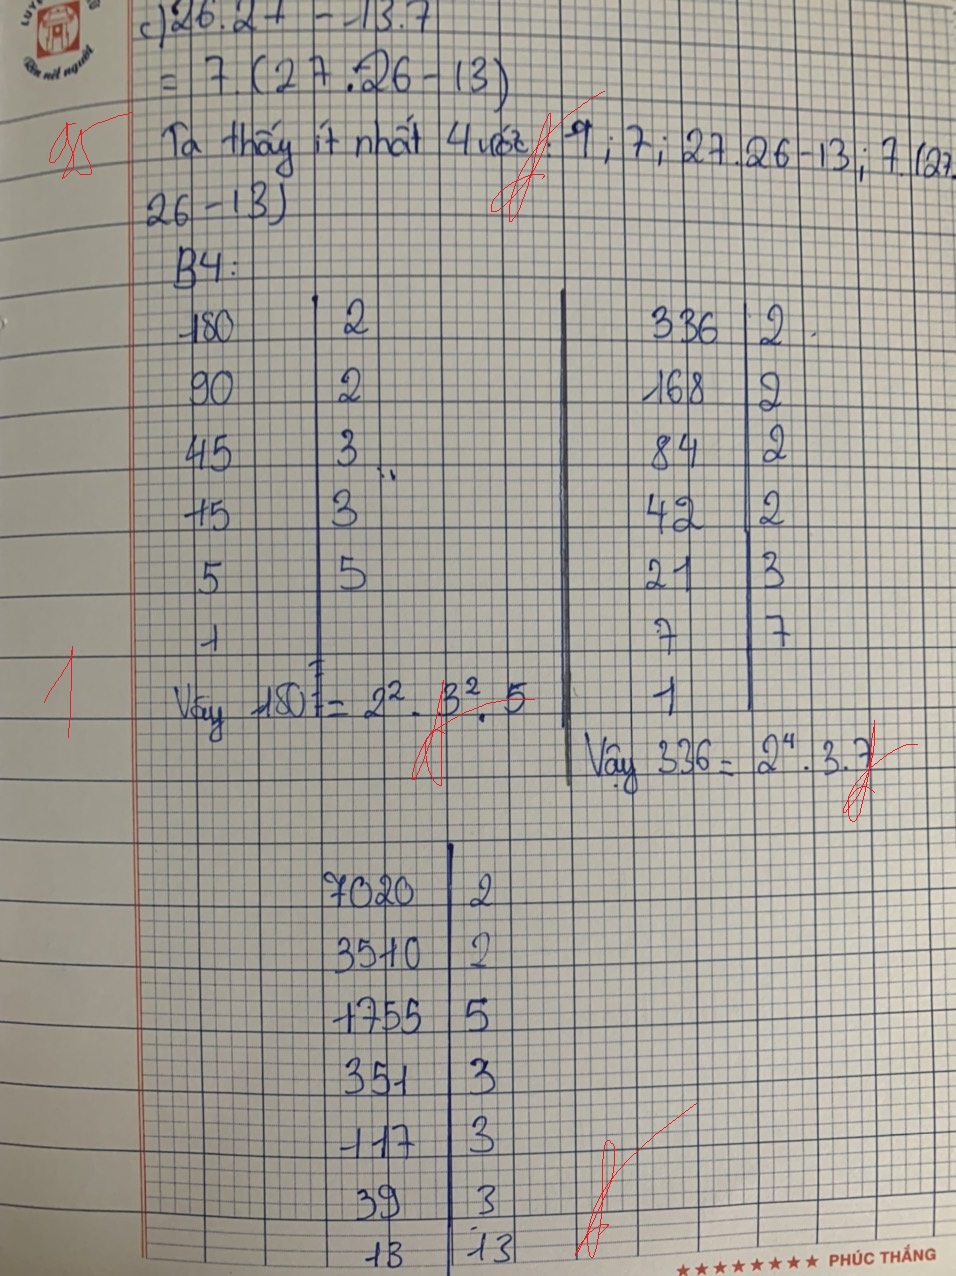 LUYỆN
Rèn nết người
c) 26.27 - 13.7
= 7.(27.26-13)
Ta thấy ít nhất 4 ước: 1; 7; 27.26-13; 7.(27.
26-13)
B4:
180 2
90 2
45 3
15 3
5 5
1
Vậy 180 = 2². 3². 5
1
336 2
168 2
84 2
42 2
21 3
7 7
1
Vậy 336 = 2⁴. 3. 7
7020 2
3510 2
1755 5
351 3
117 3
39 3
13 13
★★★★★★★★ PHÚC THẮNG